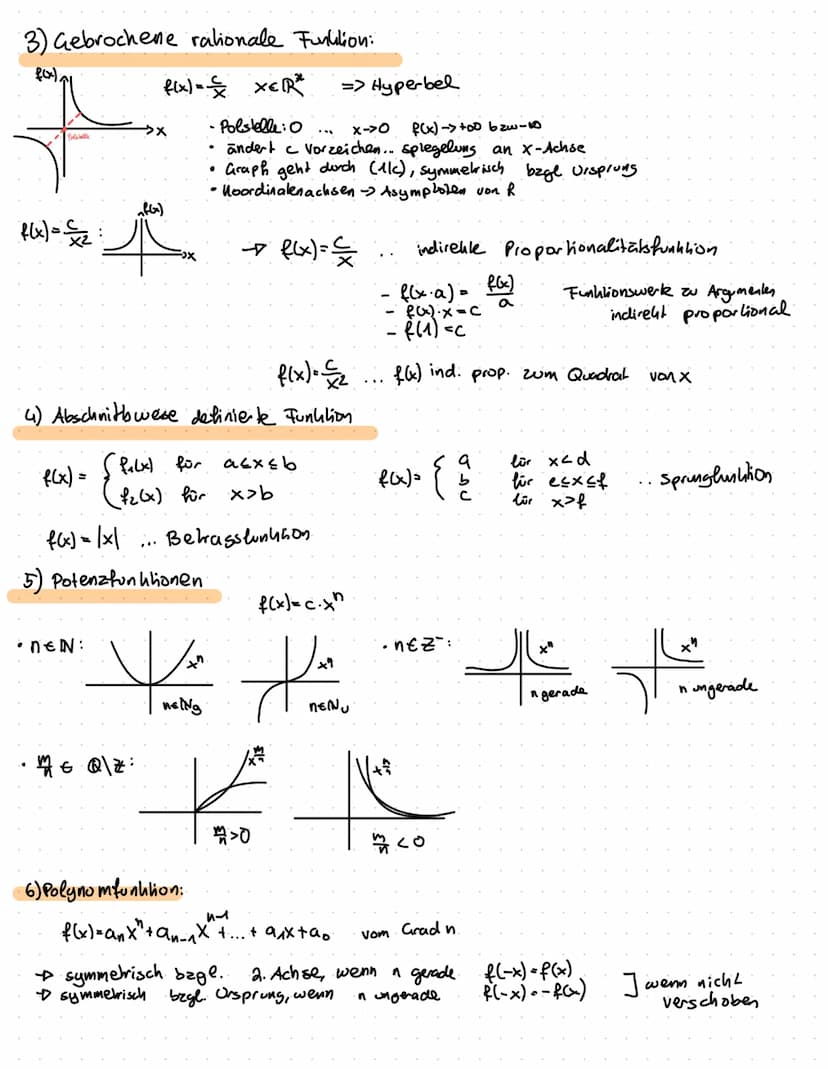 3) Gebrochene rationale Funktion:
f(x)
x
Polstelle
f(x) = c/x x∈ℝ* => Hyperbel
· Polstelle: 0 ... x→0 f(x)→+∞ bzw -∞
· ändert c Vorzeichen.. spiegelung an x-Achse
· Graph geht durch (1|c), symmetrisch bzgl Ursprung
· Koordinatenachsen → Asymptoten von f
f(x) = c/x² :
f(x)
x
→ f(x) = c/x .. indirekte Proportionalitätsfunktion
- f(x·a) = f(x)/a
- f(x)·x = c
- f(1) = c
Funktionswerte zu Argumenten
indirekt proportional
f(x) = c/x² ... f(x) ind. prop. zum Quadrat von x
4) Abschnittsweise definierte Funktion
f(x) = { f₁(x) für a≤x≤b
f₂(x) für x>b
f(x) = { a für x<d
b für e≤x≤f .. Sprungfunktion
c für x>f
f(x) = |x| ... Betragsfunktion
5) Potenzfunktionen
f(x) = c·xⁿ
· n∈ℕ:
xⁿ
n∈ℕg
xⁿ
n∈ℕu
· n∈ℤ⁻:
xⁿ
n gerade
xⁿ
n ungerade
· m/n ∈ ℚ\ℤ:
x^(m/n)
m/n > 0
m/n < 0
6) Polynomfunktion:
f(x) = aₙxⁿ + aₙ₋₁xⁿ⁻¹ + ... + a₁x + a₀ vom Grad n
→ symmetrisch bzgl. 2. Achse, wenn n gerade f(-x) = f(x)
→ symmetrisch bzgl. Ursprung, wenn n ungerade f(-x) = -f(x)
] wenn nicht
verschoben